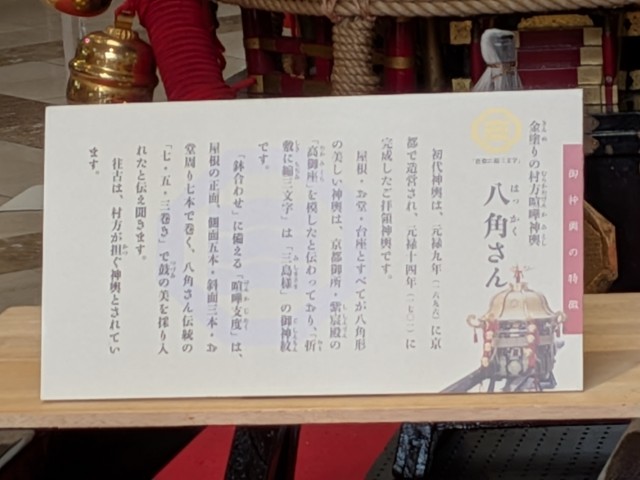 御神輿の特徴
金塗りの村方喧嘩神輿
はっかく
八角さん
初代神輿は、元禄九年(一六九六)に京
都で造営され、元禄十四年(一七〇一)に
完成したご拝領神輿です。
屋根・お堂・台座とすべてが八角形
の美しい神輿は、京都御所・紫宸殿の
「高御座」を模したと伝わっており、「折
敷に縮三文字」は「三島様」の御神紋
です。
「鉢合わせ」に備える「喧嘩支度」は、
屋根の正面、側面五本・斜面三本・お
堂周り七本で巻く、八角さん伝統の
「七・五・三巻き」で鼓の美を採り入
れたと伝え聞きます。
往古は、村方が担ぐ神輿とされてい
ます。